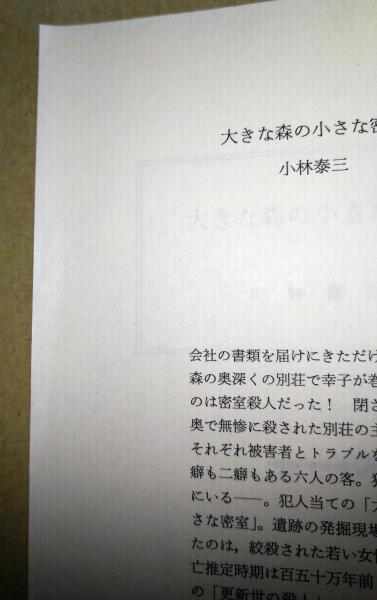 大きな森の小さな密
小林泰三
会社の書類を届けにきただけ
森の奥深くの別荘で幸子が巻
のは密室殺人だった！　閉さ
奥で無惨に殺された別荘の主
それぞれ被害者とトラブルを
癖も二癖もある六人の客。犯
にいる――。犯人当ての「大
さな密室」。遺跡の発掘現場
たのは，絞殺された若い女性
亡推定時期は百五十万年前
の「更新世の殺人」